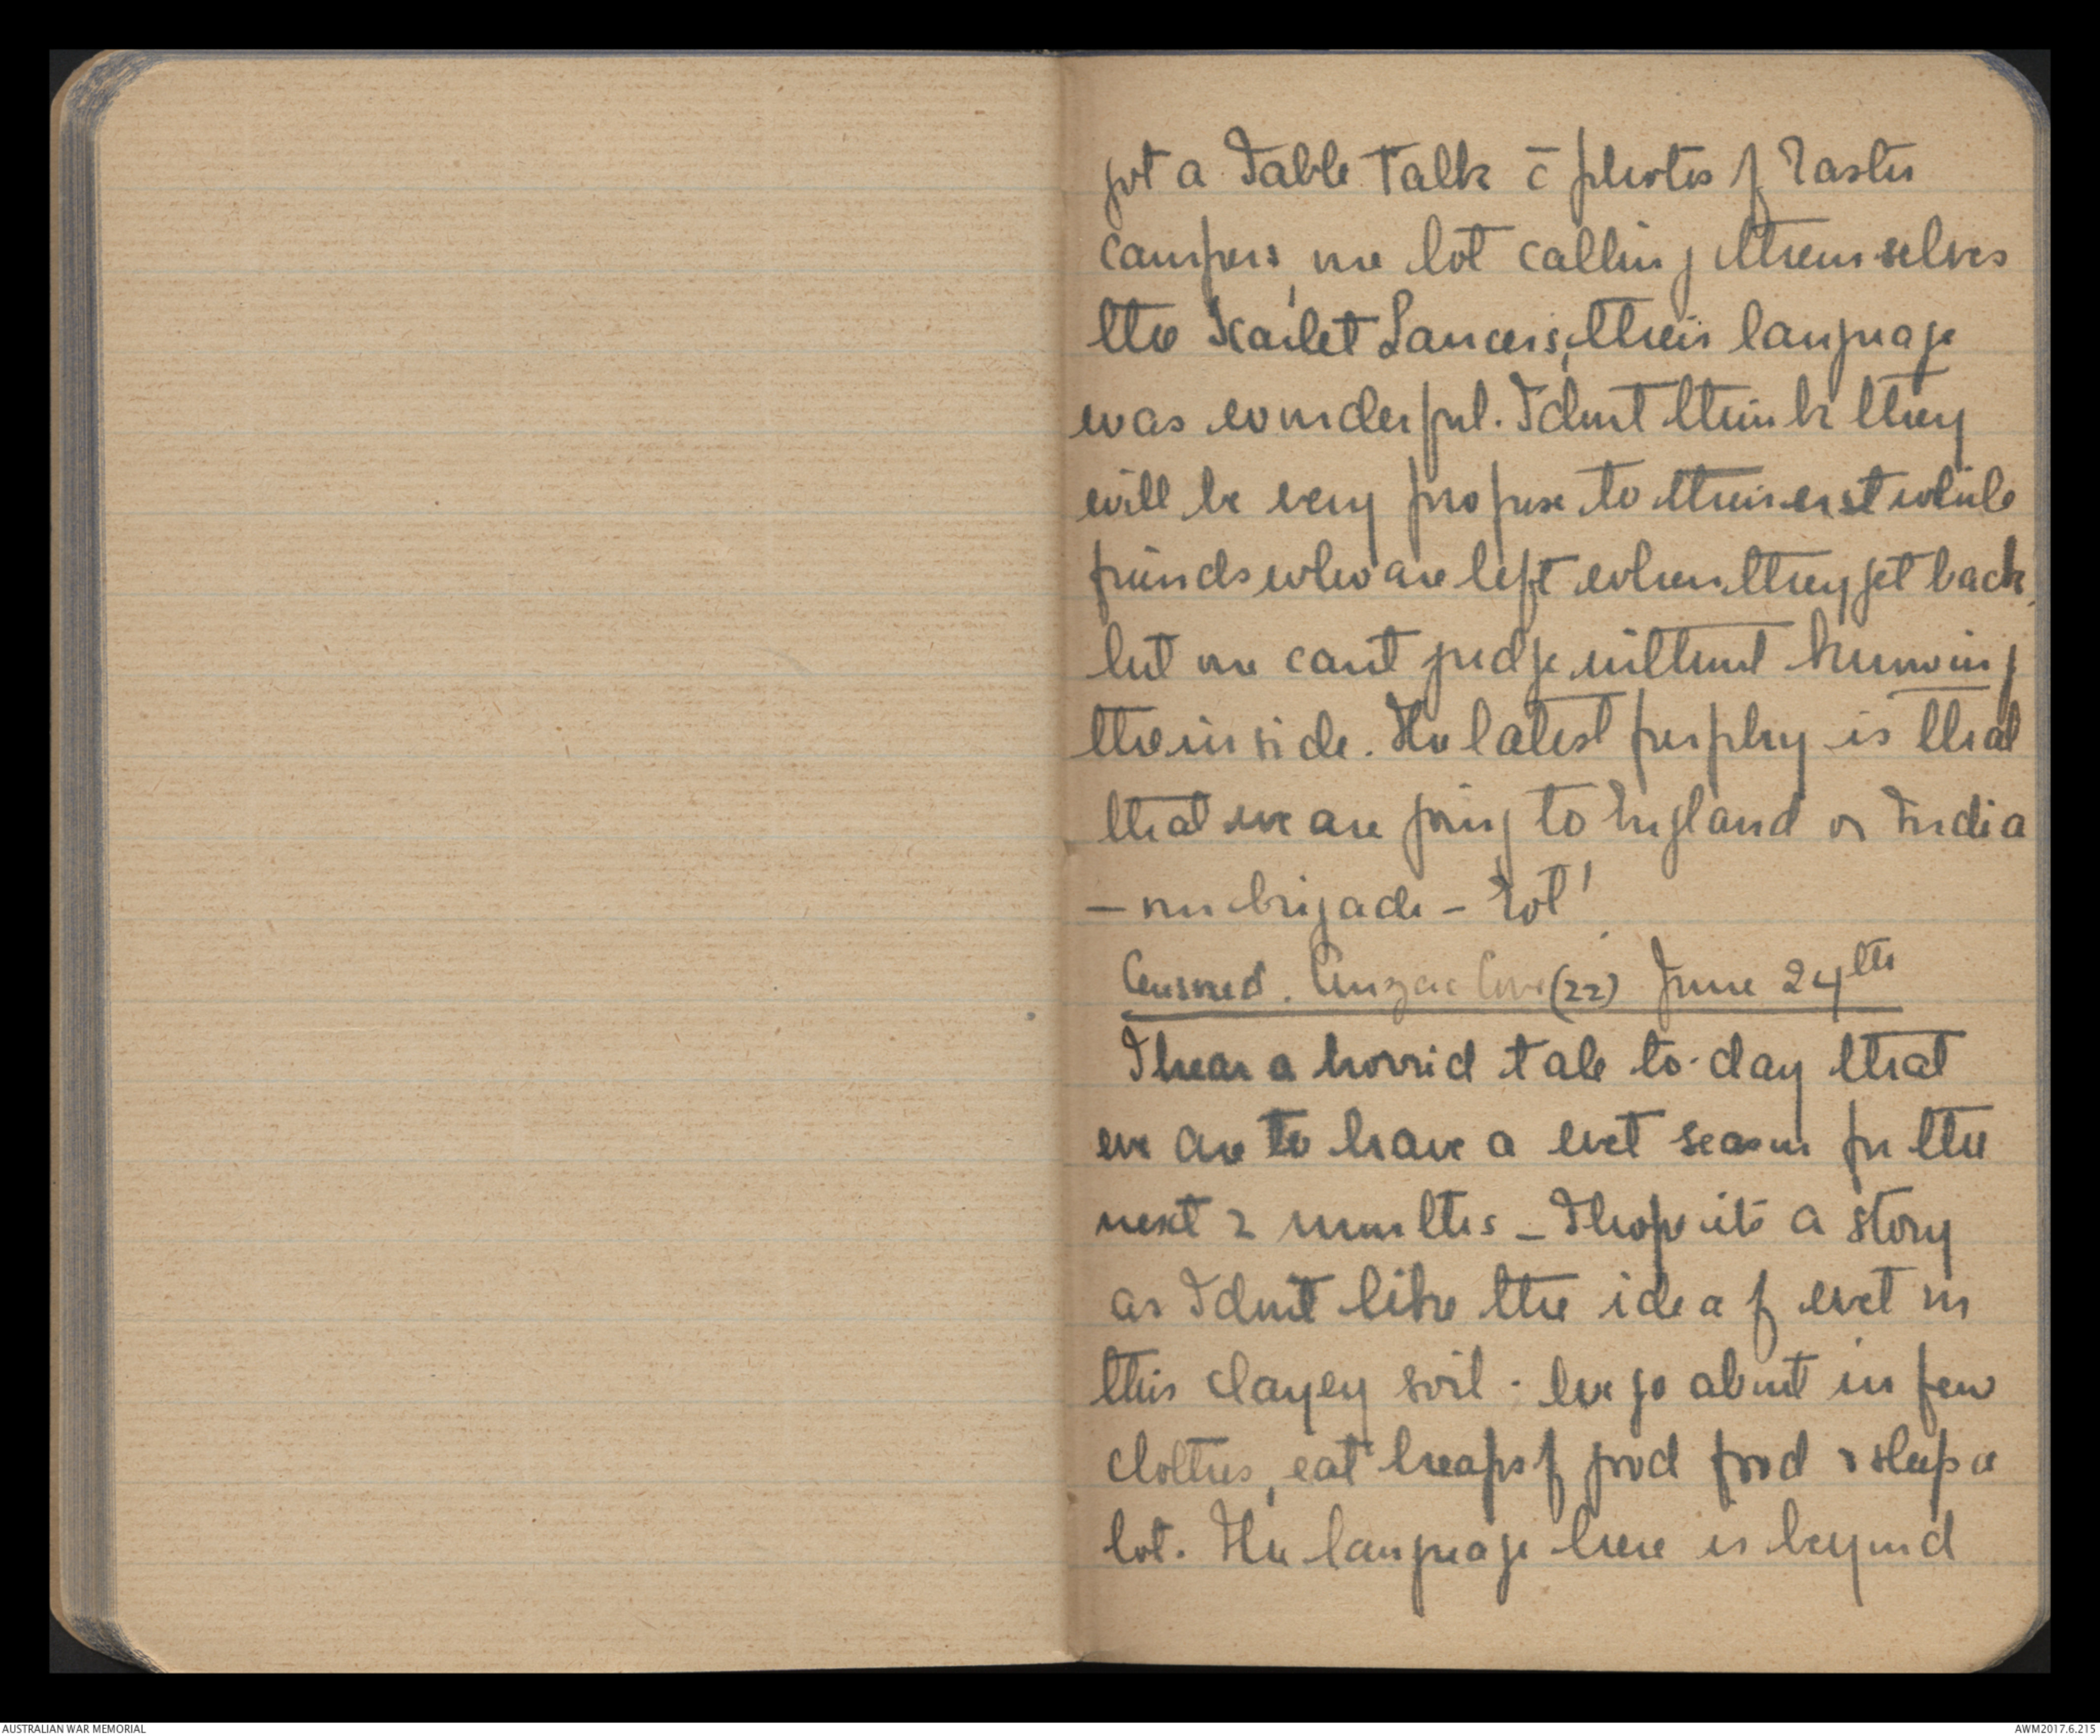 got a Table Talk c̄ photos of Easter
campers, one lot calling themselves
the Scarlet Lancers, their language
was wonderful. I dont think they
will be very profuse to their erstwhile
friends who are left when they get back,
but one cant judge without knowing
the inside. The latest furphy is that
that we are going to England or India
- our brigade - Rot!
Censored. Anzac Cove (22) June 24th
I hear a horrid tale to-day that
we are to have a wet season for the
next 2 months - I hope its a story
as I dont like the idea of wet in
this clayey soil. We go about in few
clothes, eat heaps of good food & sleep a
lot. The language here is beyond
AUSTRALIAN WAR MEMORIAL
AWM2017.6.215